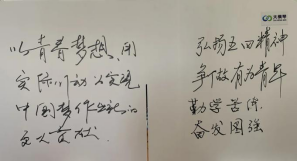 以青春梦想、用
实际行动为实现
中国梦作出新的
更大贡献
弘扬五四精神
争做有为青年
勤学苦练
奋发图强